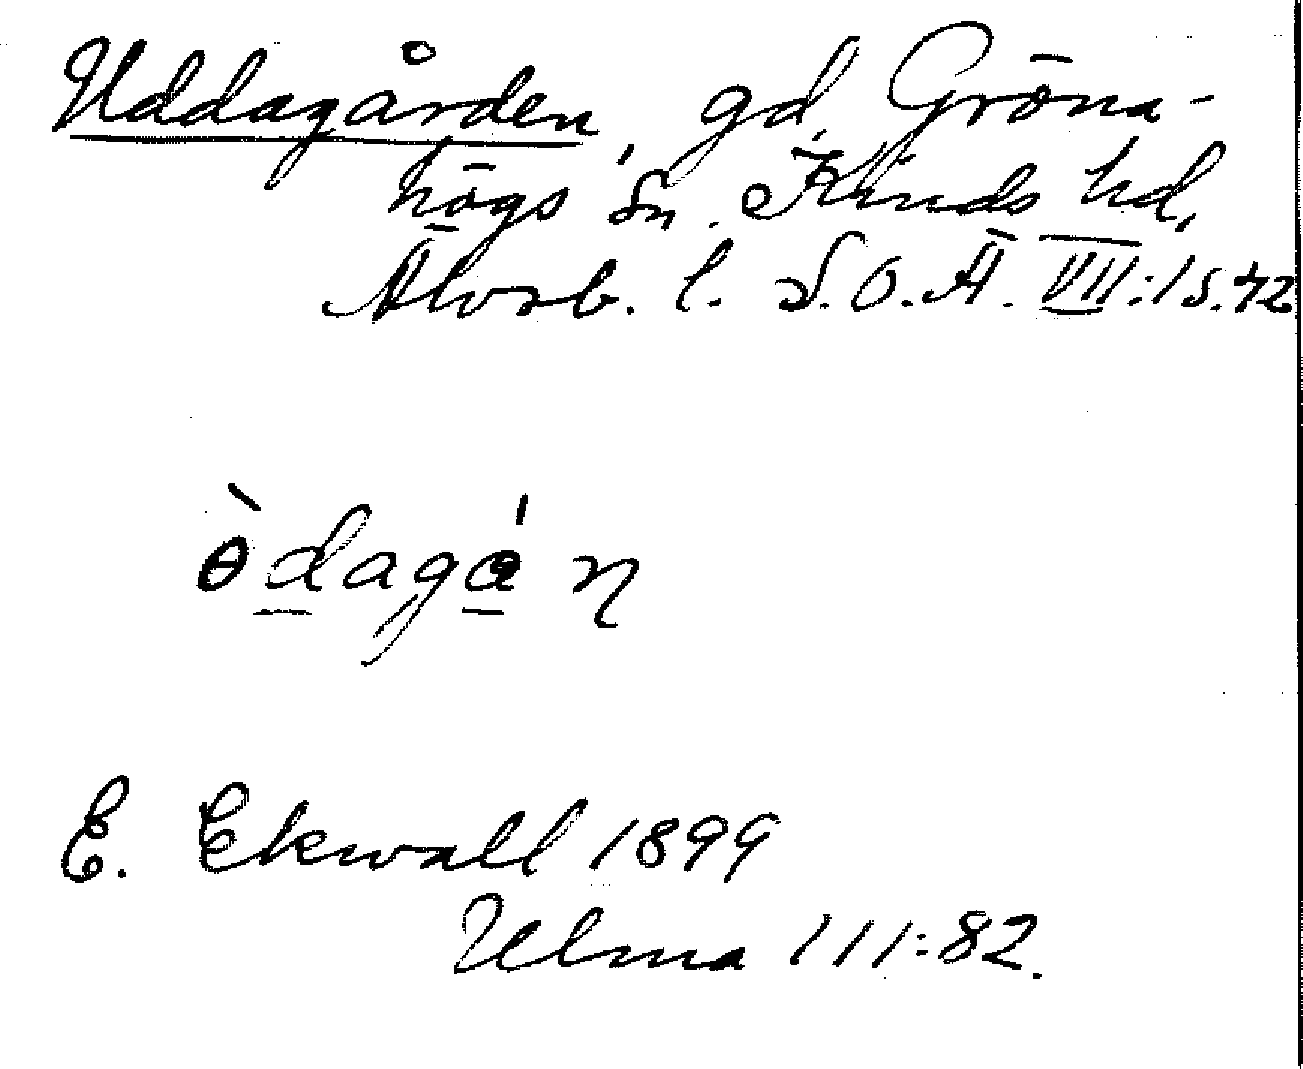 Uddagården, gd, Gröna-
högs sn. Kinds hd,
Älvsb. l. S.O.Ä. VII:1 s. 42
ɵ̀dagán
E. Ekwall 1899
Ulma 111:82.